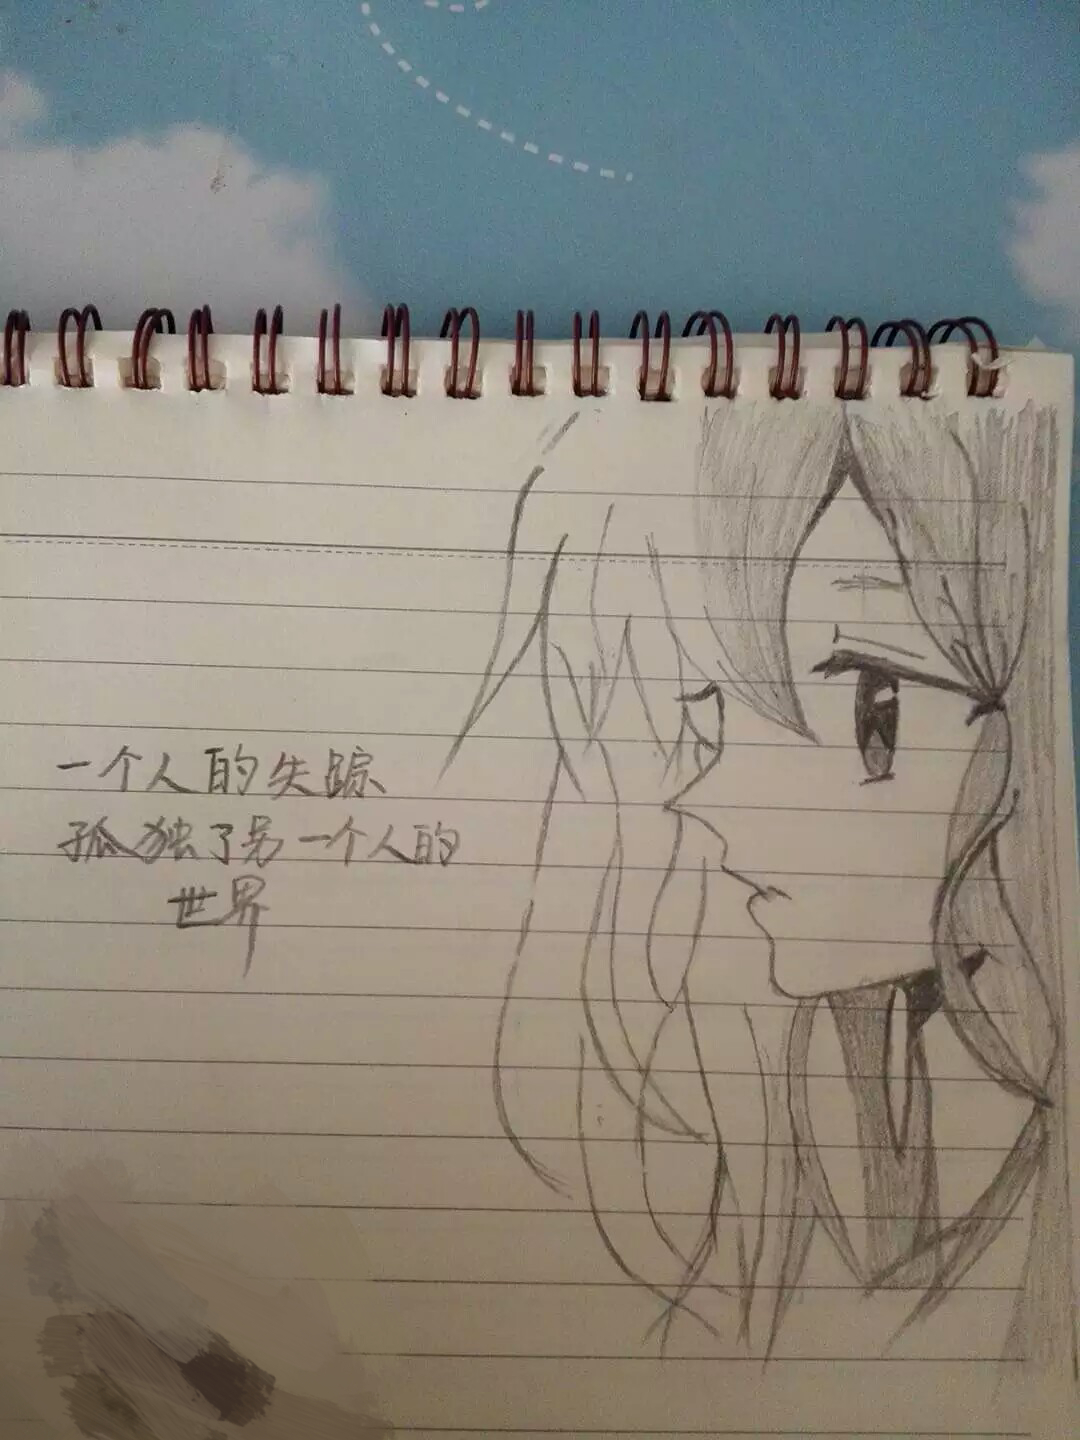 一个人的失踪
孤独了另一个人的
世界